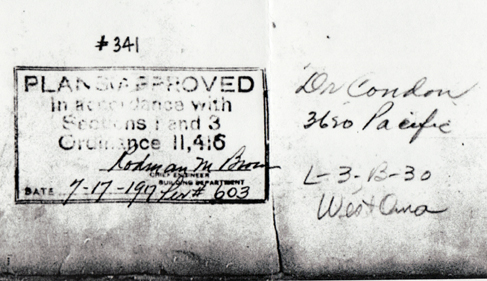 #341
PLANS APPROVED
In accordance with
Sections 1 and 3
Ordinance 11,416
Rodman M Brown
CHIEF ENGINEER
BUILDING DEPARTMENT
DATE 7-17-1917 Per# 603
Dr Condon
3690 Pacific
L-3-B-30
West Oma